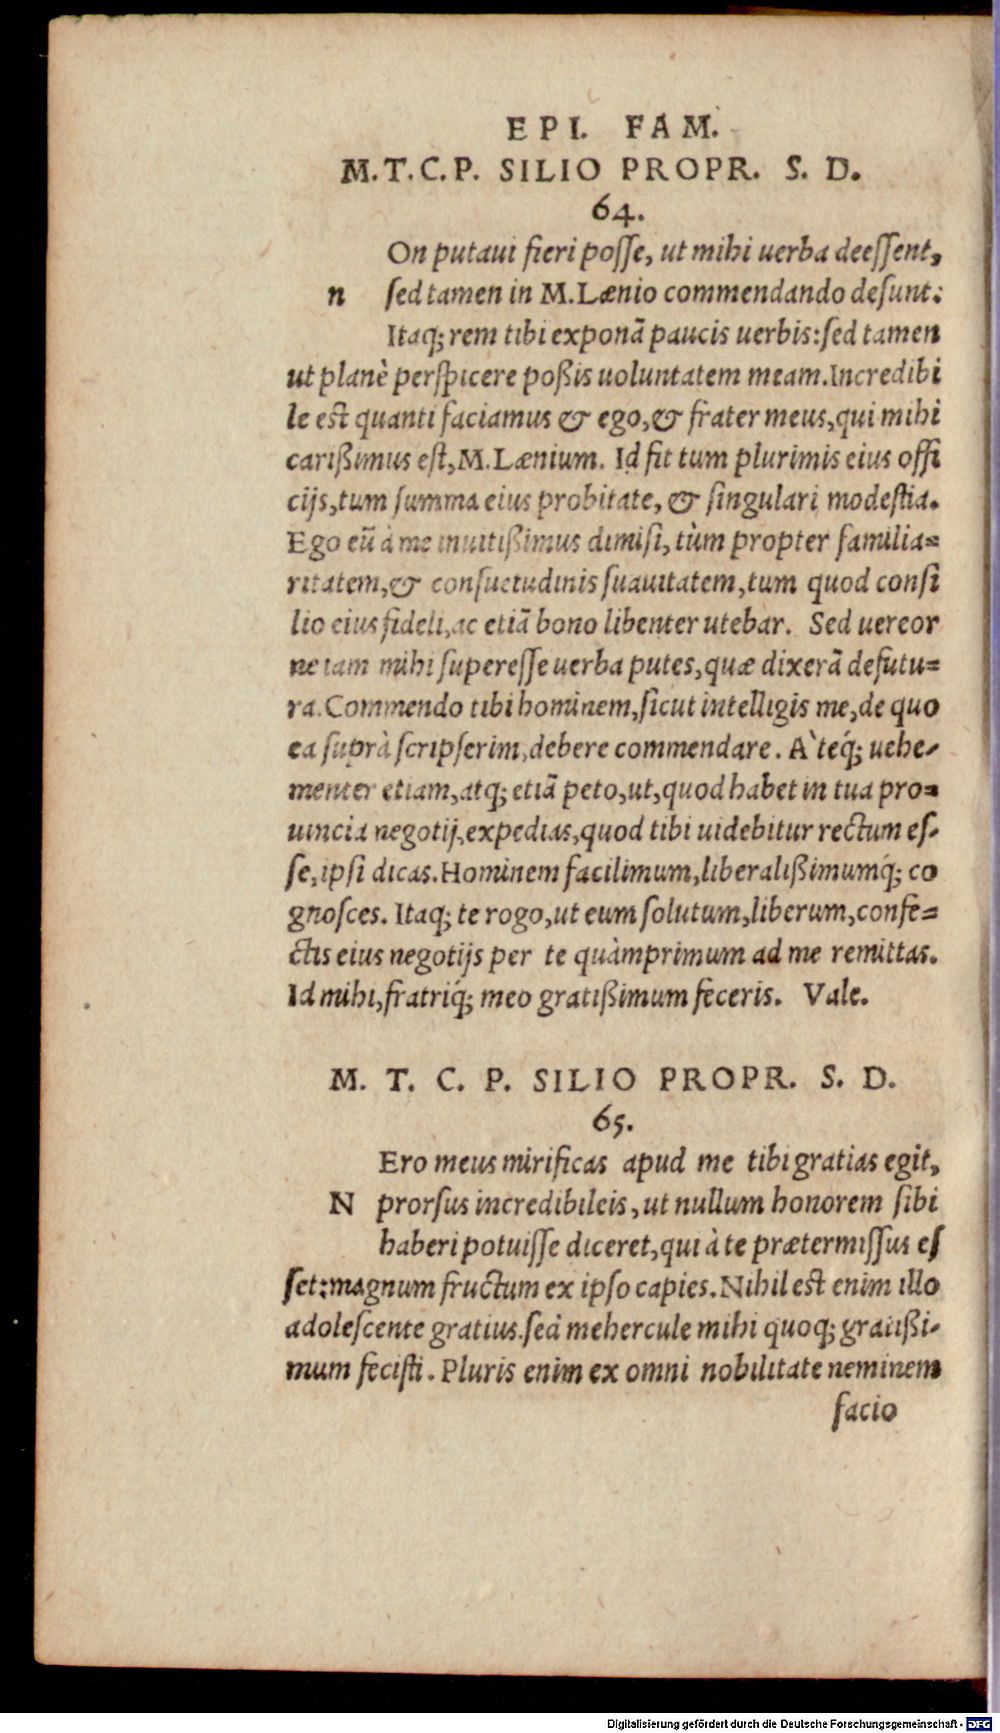 EPI. FAM.
M.T.C.P. SILIO PROPR. S. D.
64.
On putaui fieri posse, ut mihi uerba deessent,
n sed tamen in M.Lænio commendando desunt:
Itaq; rem tibi exponã paucis uerbis:sed tamen
ut planè perspicere poßis uoluntatem meam.Incredibi
le est quanti faciamus & ego,& frater meus,qui mihi
carißimus est,M.Lænium. Id fit tum plurimis eius offi
cijs,tum summa eius probitate, & singulari modestia.
Ego eũ à me inuitißimus dimisi, tùm propter familia=
ritatem,& consuetudinis suauitatem,tum quod consi
lio eius fideli,ac etiã bono libenter utebar. Sed uereor
ne iam mihi superesse uerba putes,quæ dixerã defutu=
ra.Commendo tibi hominem,sicut intelligis me,de quo
ea suprà scripserim,debere commendare. A`teq́; uehe-
menter etiam,atq; etiã peto,ut,quod habet in tua pro=
uincia negotij,expedias,quod tibi uidebitur rectum es-
se,ipsi dicas.Hominem facilimum,liberalißimumq́; co
gnosces. Itaq; te rogo,ut eum solutum,liberum,confe=
ctis eius negotijs per te quàmprimum ad me remittas.
Id mihi,fratriq́; meo gratißimum feceris. Vale.
M. T. C. P. SILIO PROPR. S. D.
65.
Ero meus mirificas apud me tibi gratias egit,
N prorsus incredibileis, ut nullum honorem sibi
haberi potuisse diceret,qui à te prætermissus es
set:magnum fructum ex ipso capies.Nihil est enim illo
adolescente gratius.sed mehercule mihi quoq; gratißi-
mum fecisti. Pluris enim ex omni nobilitate neminem
facio
Digitalisierung gefördert durch die Deutsche Forschungsgemeinschaft - DFG